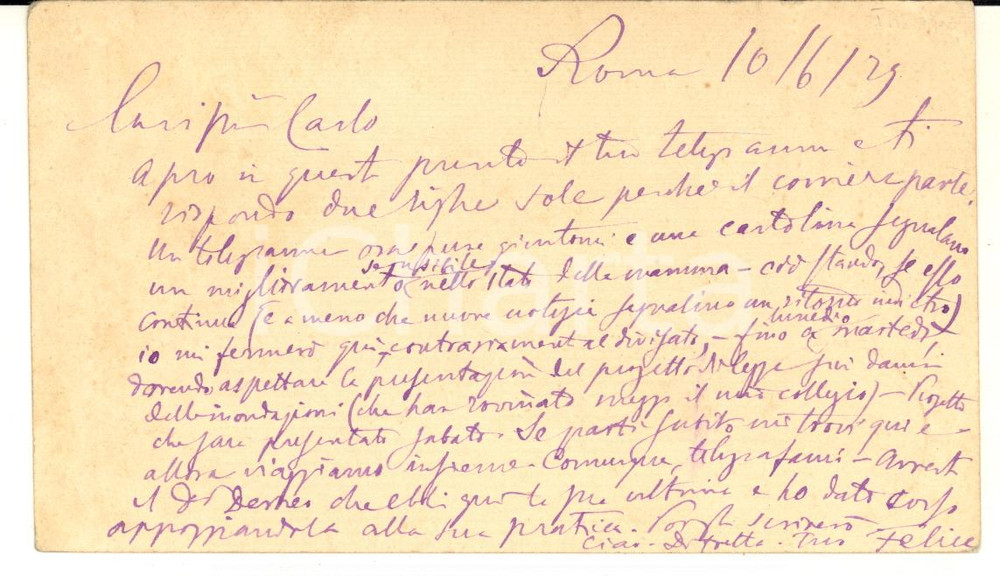 Roma 10/6/79
Carissim Carlo
Apro in quest punto il tuo telegramma e ti
rispondo due righe sole perchè il corriere parte.
Un telegramma ora pure giuntomi e una cartolina segnalano
un miglioramento sensibile nello stato della mamma - ciò stando, se esso
continua (e a meno che nuove notizie segnalino un ritorno )
io mi fermerò qui, contrariament al divisato, - fino a lunedì o martedì,
dovendo aspettare la presentazion del progetto di legge sui danni
delle inondazioni (che han rovinato mezzo il mio collegio) - Progetto
che sarà presentato sabato. Se parti subito mi trovi qui e
allora viaggiamo insieme. Comunque, telegrafami - Avvert
il Dr che ebbi qui la sua ultima e ho dato corso
appoggiandola alla sua pratica. scriverò
Ciao. Di fretta. Tuo Felice
iCharta